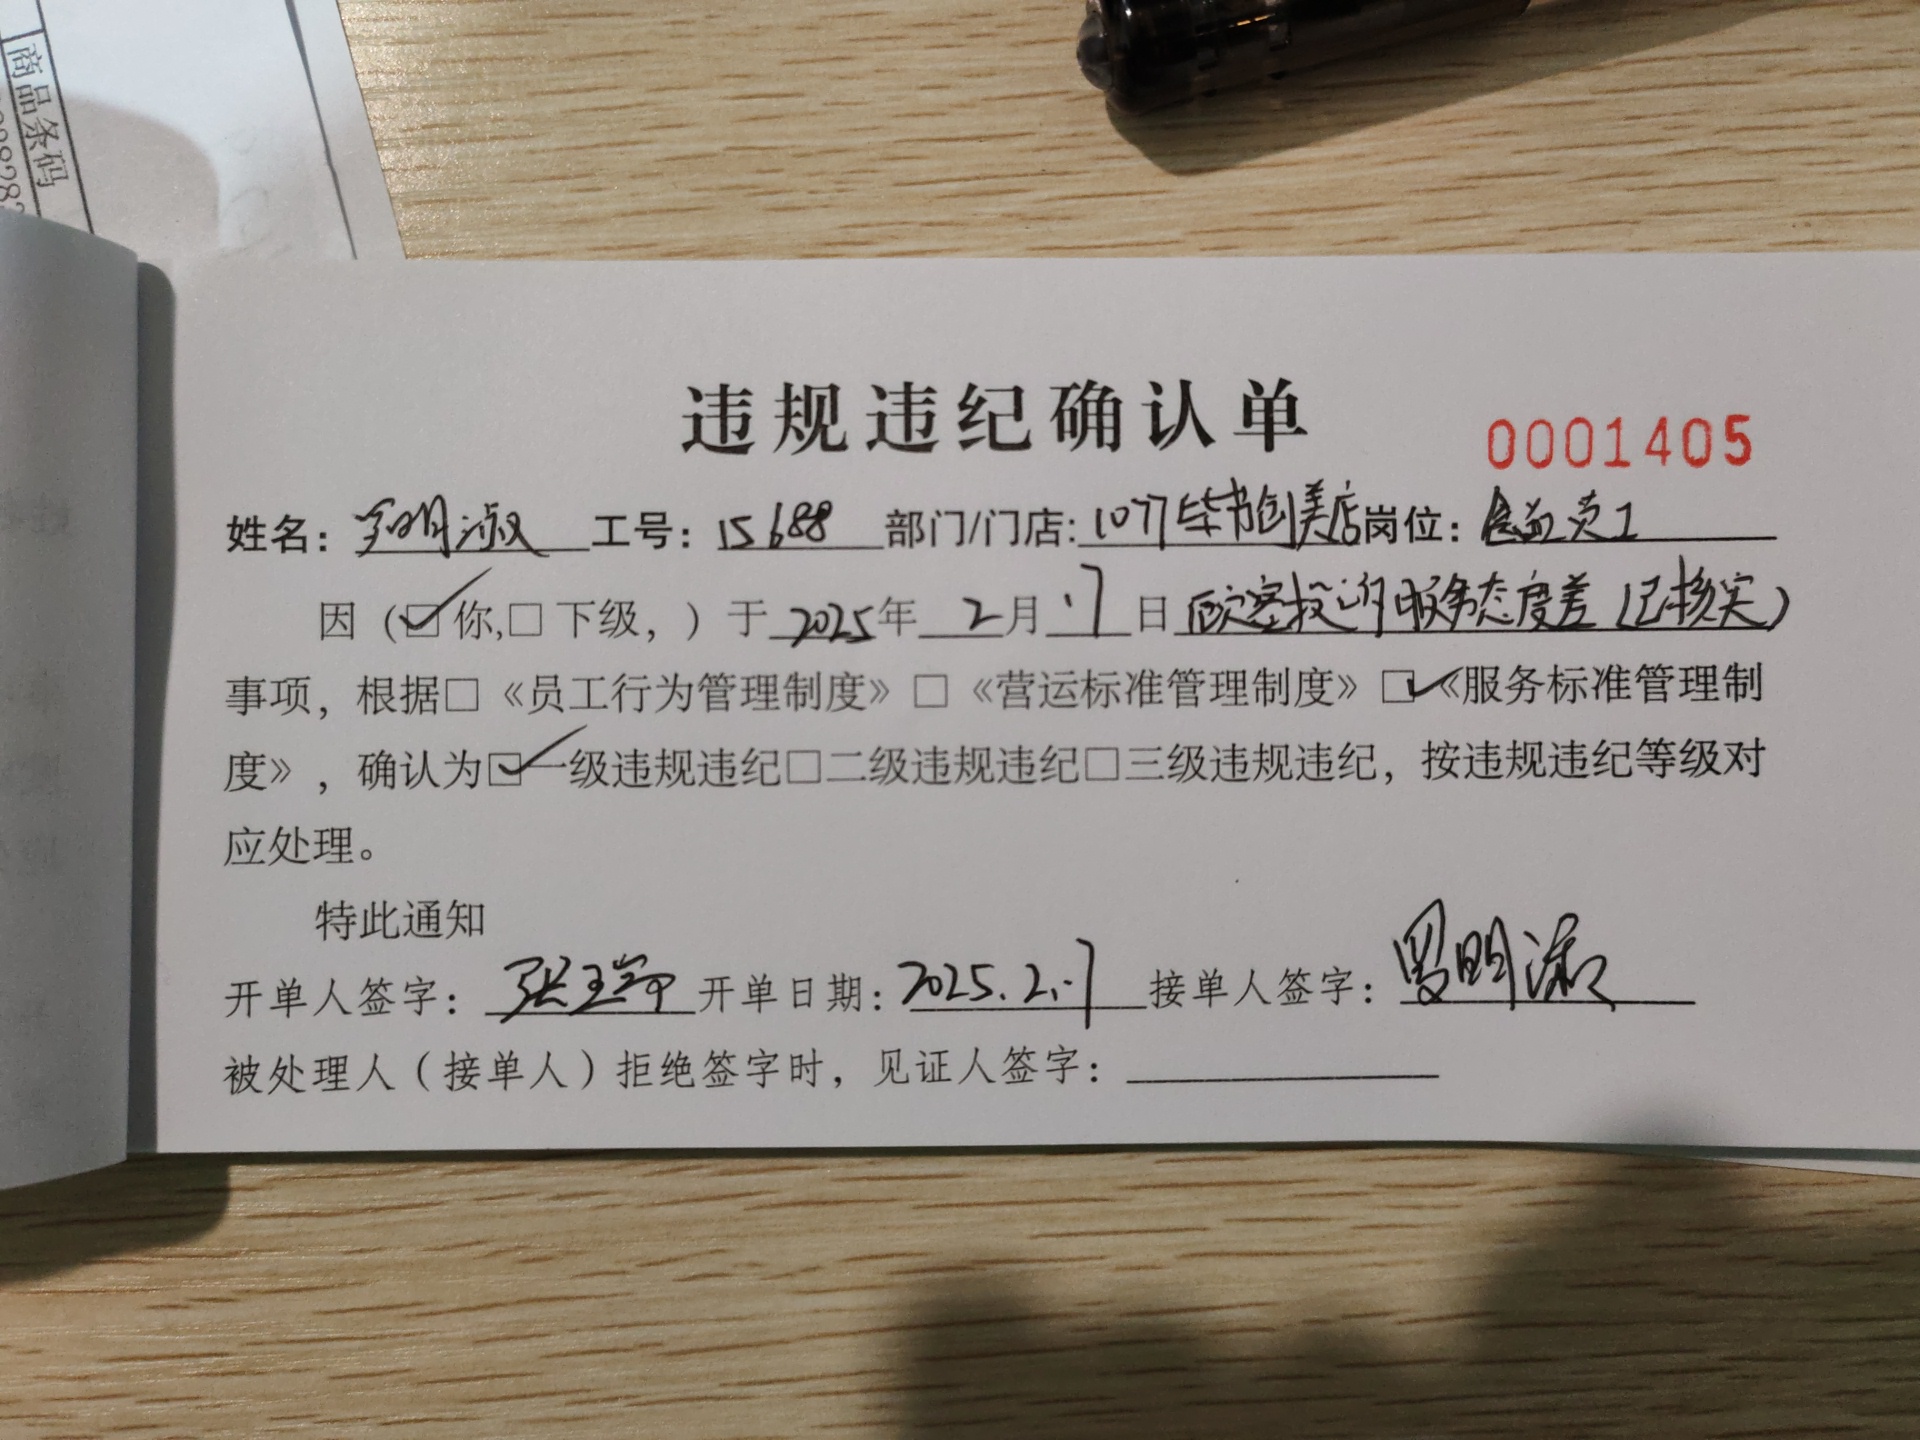 商品条码
违规违纪确认单
0001405
姓名：罗明淑 工号：15688 部门/门店:1077毕节创美店 岗位：食品员工
因（☑你,□下级，）于2025年2月17日 客投诉服务态度差（已核实）
事项，根据□《员工行为管理制度》□《营运标准管理制度》☑《服务标准管理制
度》，确认为☑一级违规违纪□二级违规违纪□三级违规违纪，按违规违纪等级对
应处理。
特此通知
开单人签字：张 开单日期：2025.2.17 接单人签字：罗明淑
被处理人（接单人）拒绝签字时，见证人签字：